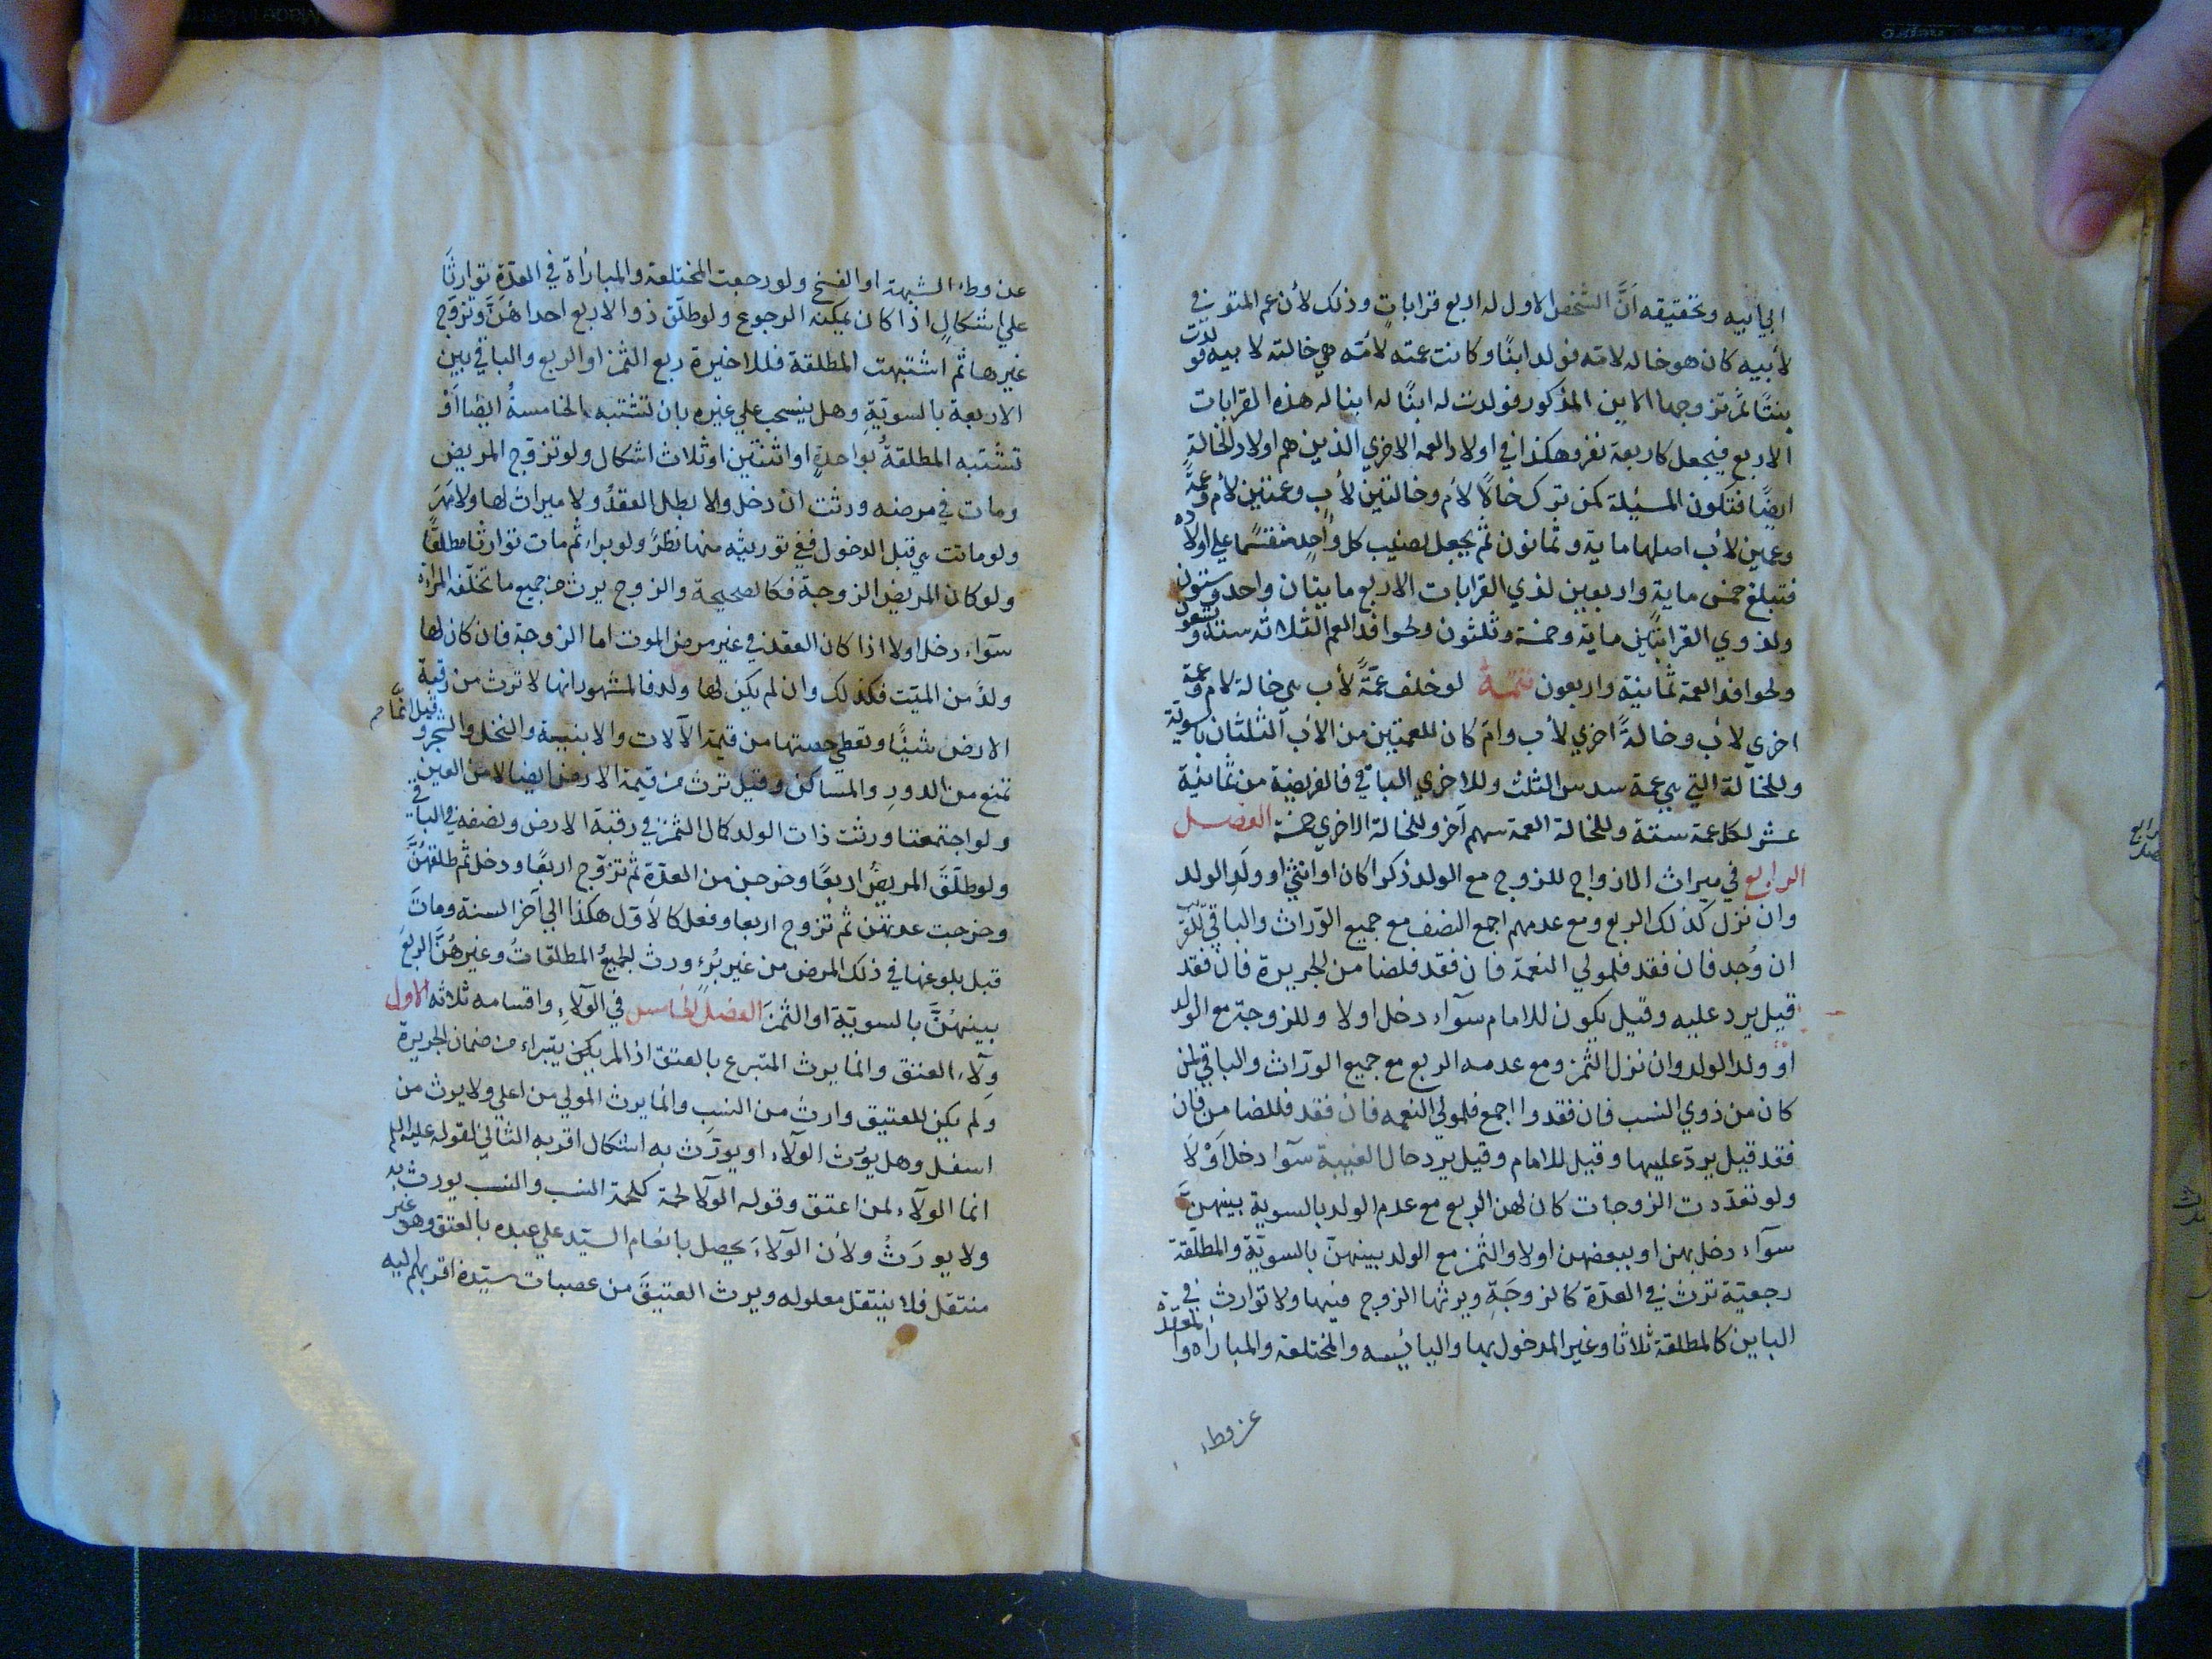 الي ابيه وتحقيقه أنَّ الشخص الاول له اربع قراباتٍ وذلك لأن عم المتوفي
لأبيه كان هو خاله لامّه فولد ابنًا وكانت عمته لأمّه هي خالته لابيه فولدت
بنتًا ثم تزوجها الابن المذكور فولدت له ابنًا له ابنا له هذه القرابات
الاربع فيجعل كاربعة نفر وهكذا في اولاد العمه الاخري الذين هم اولاد الخالة
ايضًا فتكون المسئلة كمن ترك خالًا لأم وخالتين لأب وعمتين لأم وعمّةً
وعمين لأب اصلها ماية وثمانون ثم يجعل نصيب كل واحد منقسمًا علي اولاده
فتبلغ خمس ماية واربعين لذي القرابات الاربع مايتان واحد وستون
ولذوي القرابتين ماية وخمسة وثلثون ولحوافد العم الثلاثه ستة وتسعون
ولحوافد العمة ثمانية واربعون تتمة لو خلف عمّةً لأب هي خالة لام وعمة
اخري لأب وخالةً اخري لأب وام كان للعمتين من الأب الثلثان بالسوية
وللخالة التي هي عمة سدس الثلث وللاخري الباقي فالفريضة من ثمانية
عشر لكل عمة ستة وللخالة العمة سهم آخر وللخالة الاخري خمسة الفصل
الرابع في ميراث الازواج للزوج مع الولد ذكرا كان او انثي او ولد الولد
وان نزل كذلك الربع ومع عدمهم اجمع النصف مع جميع الورّاث والباقي للقريب
ان وُجد فان فقد فلمولي النعمة فان فقد فلضامن الجريرة فان فقد
قيل يرد عليه وقيل يكون للامام سوآء دخل اولا وللزوجة مع الولد
او ولد الولد وان نزل الثمن ومع عدمه الربع مع جميع الورّاث والباقي لمن
كان من ذوي النسب فان فقدوا اجمع فلمولي النعمه فان فقد فللضامن فان
فقد قيل يردّ عليها وقيل للامام وقيل يرد حال الغيبة سوآ دخل أوْ لَا
ولو تعدّدت الزوجات كان لهن الربع مع عدم الولد بالسوية بينهنَّ
سوآء دخل بهن او ببعضهن اولا والثمن مع الولد بينهنّ بالسويّة والمطلقة
رجعيّة ترث في العدّة كالزوجَةِ ويرثها الزوج فيها ولا توارث في
الباين كالمطلقة ثلاثا وغير المدخول بها واليائسه والمختلعة والمباراه والمعتدّة
عن وطء
رابع
عن وطء الشبهة او الفسخ ولو رجعت المختلعة والمباراة في العدّة توارثَا
علي اشكالٍ اذا كان يمكنه الرجوع ولو طلّق ذو الاربع احداهُنَّ وتزوّج
غيرها ثم اشتبهت المطلقة فللاخيرة ربع الثمن او الربع والباقي بين
الاربعة بالسويّةِ وهل ينسحب علي غيره بان تشتبه الخامسةُ ايضا أوْ
تشتبه المطلقةُ بواحدةٍ او اثنتين او ثلاث اشكال ولو تزوّج المريض
ومات في مرضه ورثت ان دخل والا بطل العقدُ ولا ميراث لها ولا مَهَر
ولو ماتت هي قبل الدخول ففي توريثه منها نظرٌ ولو براء ثم مات توارثا مطلقًا
ولو كان المريض الزوجة فكالصحيحة والزوج يرث من جميع ما تخلّفه المراءة
سوآء دخل اولا اذا كان العقد في غير مرض الموت اما الزوجة فان كان لها
ولدٌ من الميّت فكذلك وان لم يكن لها ولد فالمشهور انها لا ترث من رقبة
الارض شيئًا وتعطي حصتها من قيمة الآلات والابنية والنخل والشجر وقيل انّما
تمنع من الدورِ والمساكن وقيل ترث من قيمة الارض ايضا لا من العين
ولو اجتمعتا ورثت ذات الولد كمال الثمن في رقبة الارض ونصفه في الباقي
ولو طلّقَ المريضُ اربعًا وخرجن من العدّة ثم تزوّج اربعًا ودخل ثم طلقهُنَّ
وخرجت عدتهن ثم تزوج اربعا وفعل كالأوّل هكذا الي آخر السنة وماتَ
قبل بلوغها في ذلك المرض من غير بُرءٍ ورث الجميعُ المطلقاتُ وغيرهُنَّ الربعَ
بينهُنَّ بالسويّة او الثمنَ الفصل الخامس في الولآءِ واقسامه ثلاثه الاول
ولآء العتق وانما يرث المتبرع بالعتق اذا لم يكن يتبراء من ضمان الجريرة
ولم يكن للعتيق وارث من النسب وانما يرث المولي من اعلي ولا يرث من
اسفل وهل يُورث الولآء او يورَث به اشكال اقربه الثاني لقوله عليه السلم
انما الولآء لمن اعتق وقوله الولآ لحمة كلحمة النسب والنسب يورث به
ولا يورَثُ ولأن الولآءَ يحصل بانعام السيّد علي عبده بالعتق وهو غير
منتقل فلا ينتقل معلوله ويرث العتيقَ من عصبات سيّده اقربهم اليه